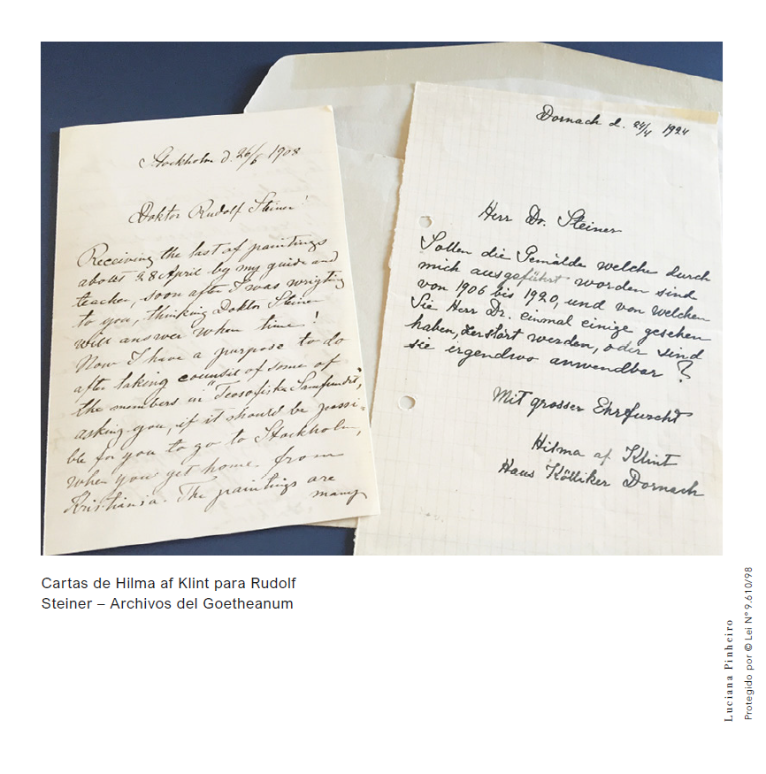 Stockholm d. 26/6 1908
Doktor Rudolf Steiner!
Receiving the last of paintings
about 28 April by my guide and
teacher, soon after I was wrigting
to you, thinking Doktor Steiner
will answer when time!
Now I have a purpose to do
after taking council of some of
the members in "Teosofiska Samfundet",
asking you, if it should be possi-
ble for you to go to Stockholm,
when you get home from
Kristiania. The paintings are
many
Dornach d. 24/4 1924
Herr Dr. Steiner
Sollen die Gemälde welche durch
mich ausgeführt worden sind
von 1906 bis 1920, und von welchen
Sie Herr Dr. einmal einige gesehen
haben, zerstört werden, oder sind
sie irgendwo anwendbar?
Mit grosser Ehrfurcht
Hilma af Klint
Haus Kölliker Dornach
Cartas de Hilma af Klint para Rudolf
Steiner – Archivos del Goetheanum
Luciana Pinheiro
Protegido por © Lei Nº 9.610/98